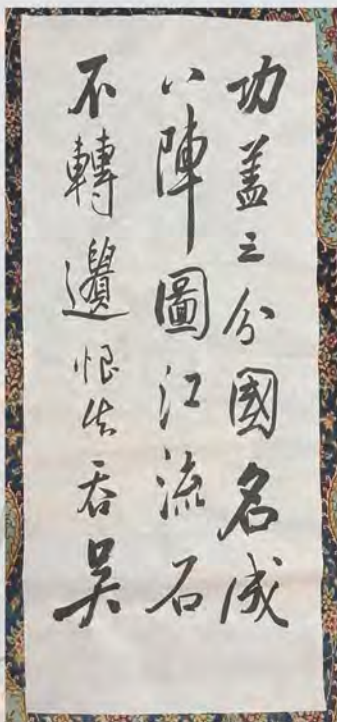 功蓋三分國名成
八陣圖江流石
不轉遺恨失吞吳